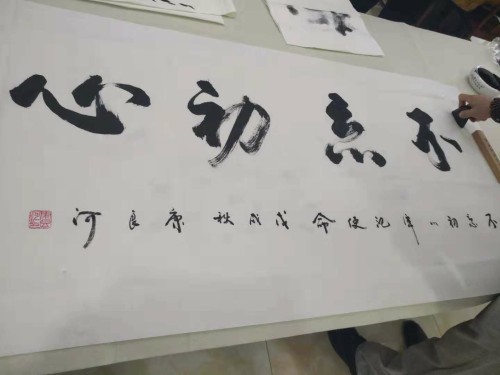 不忘初心
不忘初心 牢记使命 戊戌秋 康良河